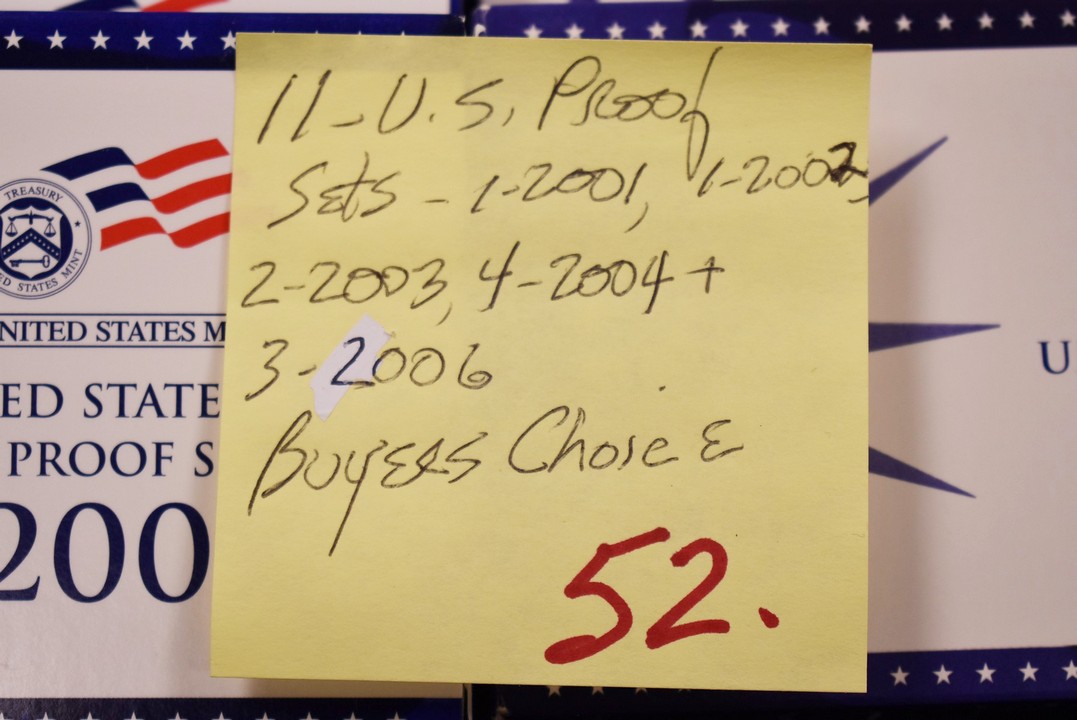 11-U.S. Proof
Sets - 1-2001, 1-2002,
2-2003, 4-2004 +
3-2006
Buyers Choice
52.
TREASURY
ED STATES MINT
NITED STATES M
ED STATE
PROOF S
200
U